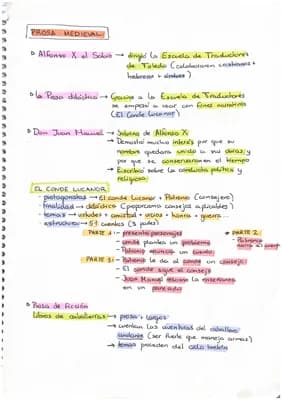 PROSA MEDIEVAL
Alfonso X el Sabio → dirigió la Escuela de Traductores
de Toledo (colaboraron cristianos +
hebreos + árabes)
La Prosa didáctica → Gracias a la Escuela de Traductores
se empezó a usar con fines narrativos
(El Conde Lucanor)
Don Juan Manuel → Sobrino de Alfonso X
→ Demostró mucho interés por que su
nombre quedara unido a sus obras y
por que se conservaran en el tiempo
→ Escribió sobre la conducta política y
religiosa
EL CONDE LUCANOR
- protagonistas → El conde Lucanor + Patronio (consejero)
- finalidad → didáctica (proporciona consejos aplicables)
- temas → virtudes + amistad + vicios + honra + guerra...
- estructura → 51 cuentos (3 partes)
PARTE 1: - presenta personajes
- conde plantea un problema
- Patronio anuncia un cuento
PARTE 2:
- Patronio
narra el cuento
PARTE 3: - Patronio le da al conde un consejo
- El conde sigue el consejo
- Juan Manuel resume la enseñanza
en un pareado
Prosa de ficción
Libros de caballerías → prosa + largos
→ cuentan las aventuras del caballero
andante (ser fuerte que maneja armas)
→ temas proceden del ciclo bretón